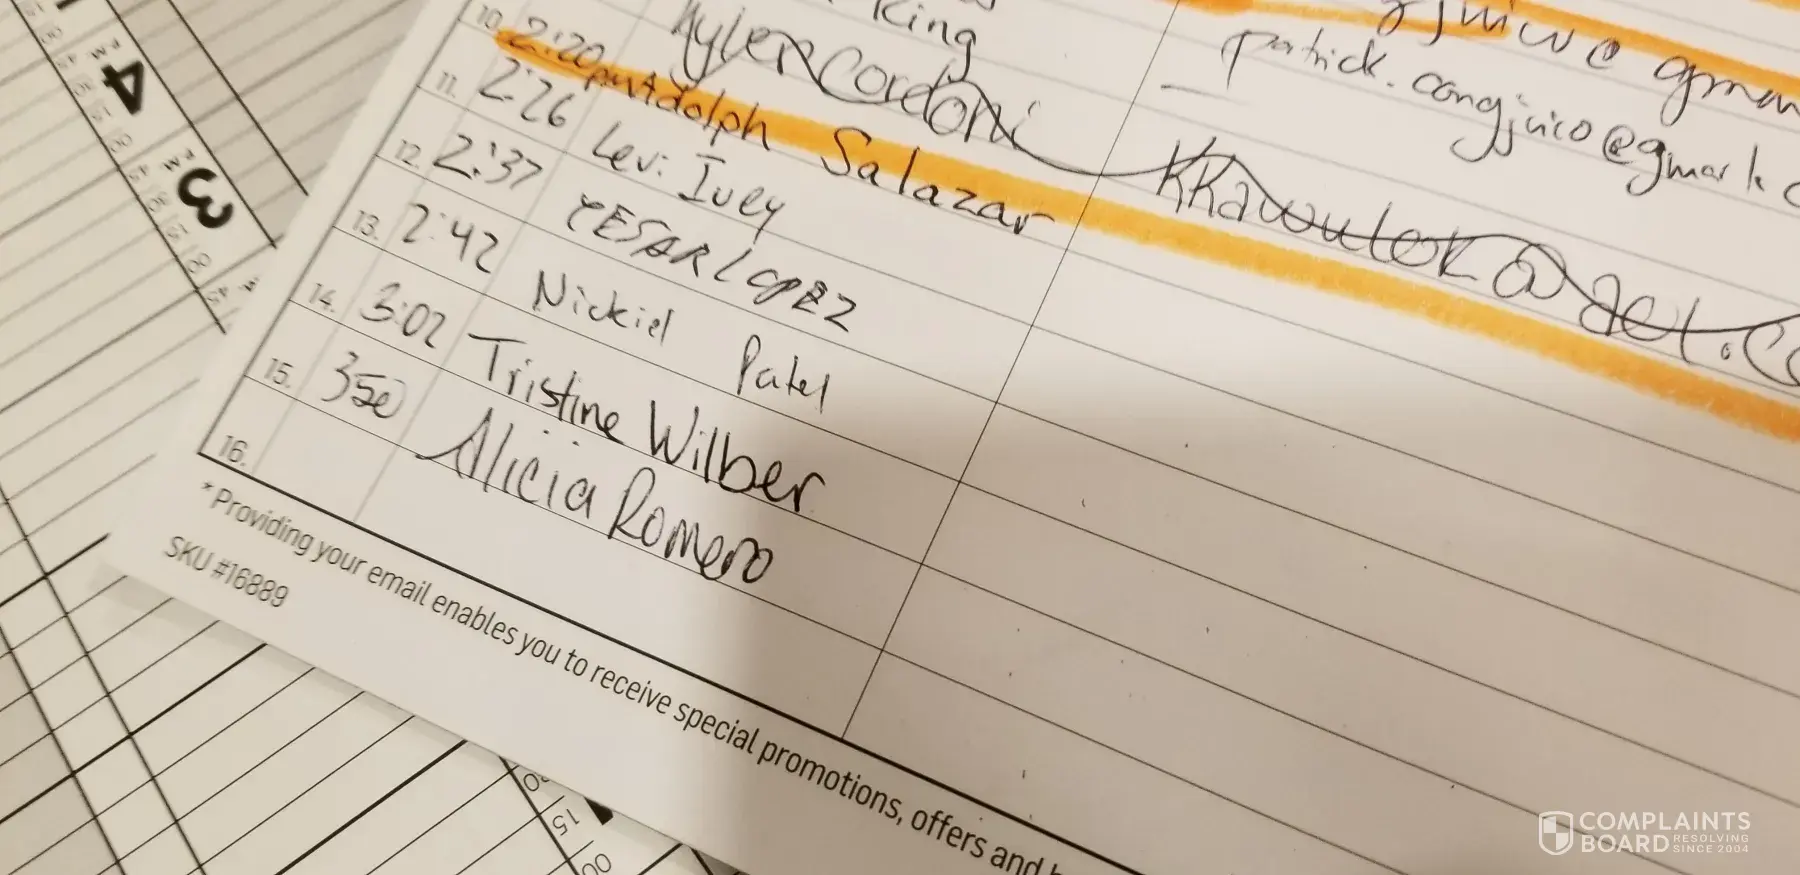 King
gjuico@gmai
Kyler Cordoni Kkawulok@aol.co
patrick.congjuico@gmail.c
10. 2:20pm Adolph Salazar
11. 2:26 Levi Ivey
12. 2:37 CESAR LOPEZ
13. 2:42 Nickiel Patel
14. 3:02 Tristine Wilber
15. 350 Alicia Romero
16.
*Providing your email enables you to receive special promotions, offers and
SKU #16889
4
3
15
00
COMPLAINTS
BOARD RESOLVING SINCE 2004